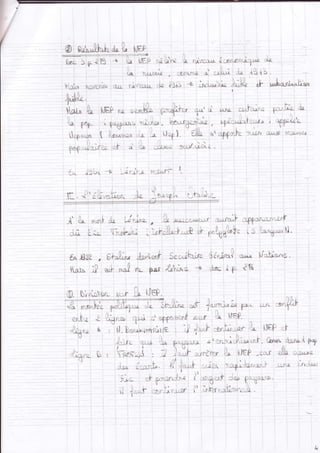 ① Résultats de la NEP
Doc 3 p 275 → la NEP relève le niveau économique de
la Russie, comme à celui de 1913.
Mais marche au niveau de 1913 → industrie faible et urbanisation
faible.
Mais la NEP ne semble profiter qu'à une certaine partie de
la pop : paysans riches, bourgeoisie, spéculateurs : appelés
Nepmen (hommes de la Nep). Elle n'apporte rien aux masses
populaires et à la classe ouvrière.
En 1924 → Lénine meurt !
II - L'élévation de Joseph Staline
A la mort de Lénine, le successeur aurait apparemment
dû être Trotski : intellectuel et polyglotte (5 langues).
En 1922, Staline devient Secrétaire Général aux Nations.
Mais il est mal vu par Lénine → doc 1 p 276
① Division sur la NEP.
La montée politique de Staline est favorisée par un conflit
entre 2 lignes qui s'opposent sur la NEP.
Ligne A : N. Boukharine : il faut continuer la NEP et
faire que les paysans s'enrichissent,
Ligne B : Trotski : il faut arrêter la NEP car elle creuse
des écarts. Il faut créer rapidement une
et prendre l'argent des paysans.
Il faut continuer l'internationale.
4